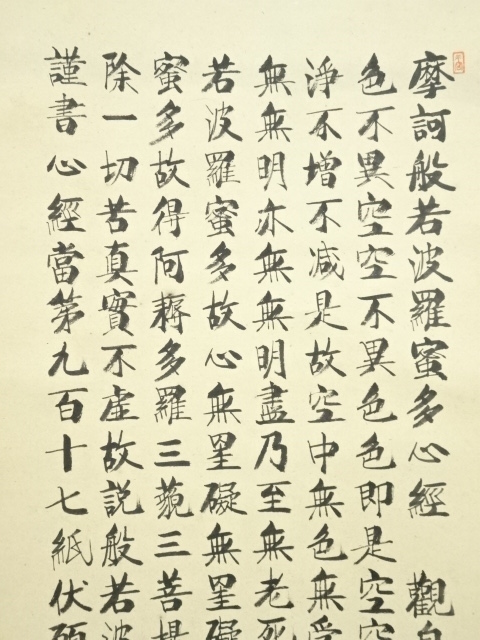 摩訶般若波羅蜜多心經 觀自
色不異空空不異色色即是空空
淨不增不减是故空中無色無受
無無明亦無無明盡乃至無老死
若波羅蜜多故心無罣礙無罣礙
蜜多故得阿耨多羅三藐三菩提
除一切苦真實不虛故説般若波
謹書心經當第九百十七紙伏願